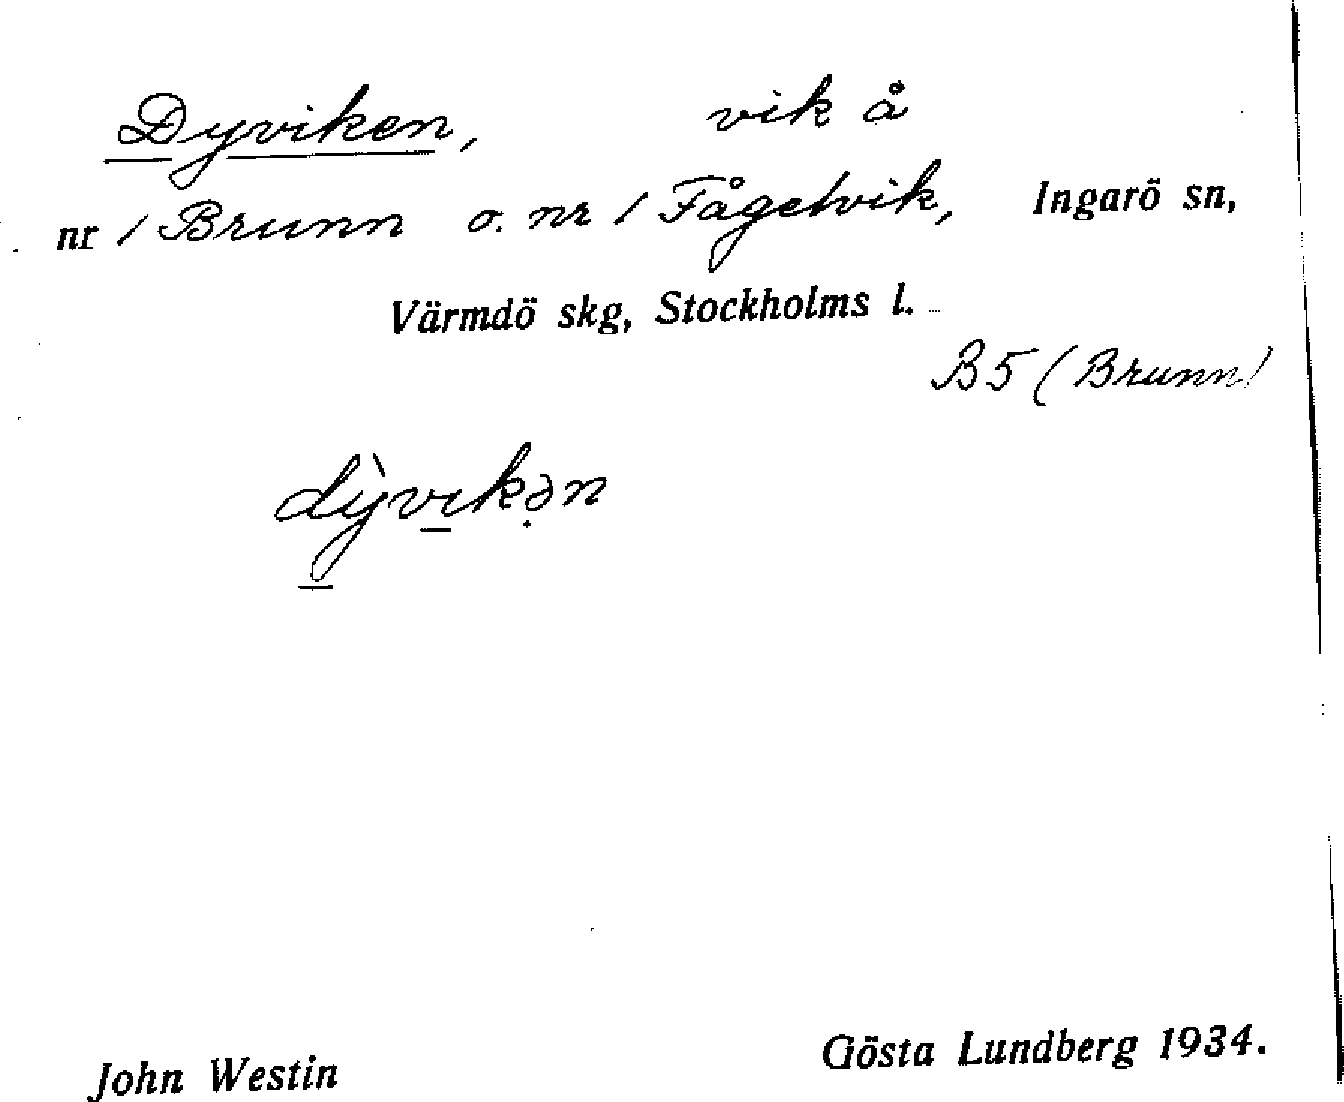 Dyviken, vik å
nr 1 Brunn o. nr 1 Fågelvik, Ingarö sn,
Värmdö skg, Stockholms l.
B5 (Brunn)
dỳ̠vi̠kə̣n
John Westin Gösta Lundberg 1934.